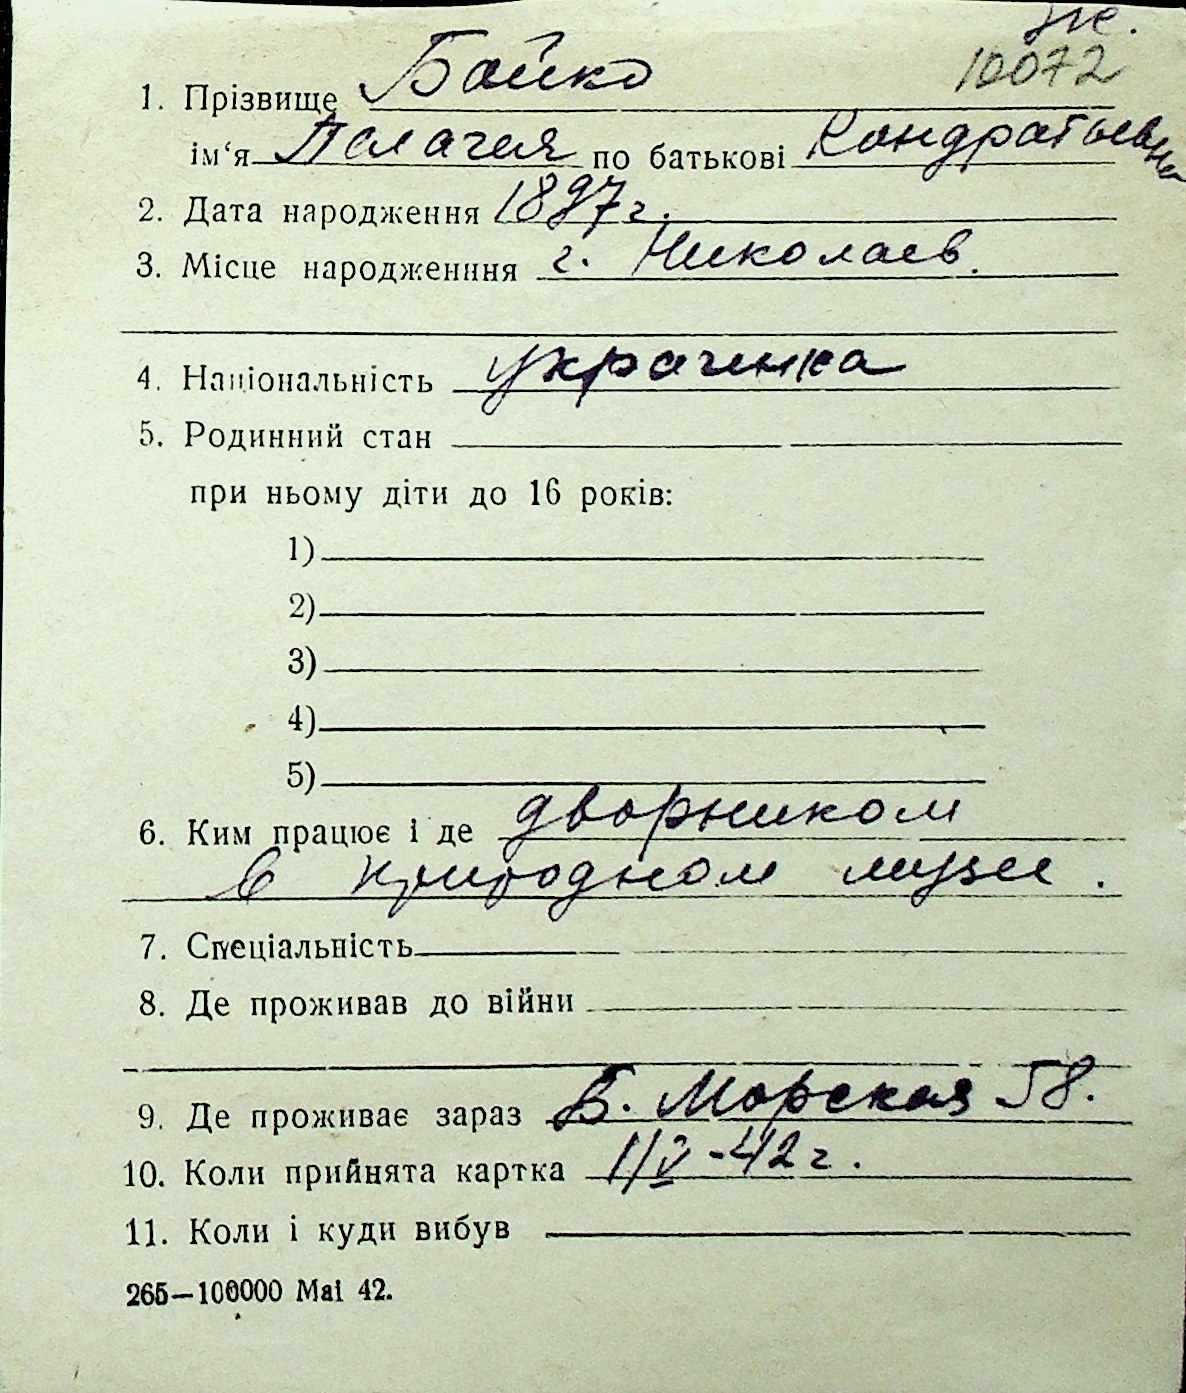 же.
10072
1. Прізвище Бойко
ім‘я Пелагея по батькові Кондратьевна
2. Дата народження 1897 г.
3. Місце народженння г. Николаев.
4. Національність украинка
5. Родинний стан
при ньому діти до 16 років:
1)
2)
3)
4)
5)
6. Ким працює і де дворником
в природном музее.
7. Спеціальність
8. Де проживав до війни
9. Де проживає зараз Б. Морская 58.
10. Коли прийнята картка 1/V-42 г.
11. Коли і куди вибув
265—100000 Mai 42.